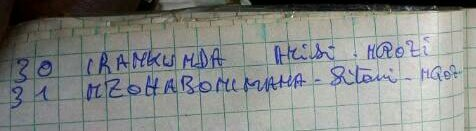 30 IRANKUNDA Akisi - NGOZI
31 NZOHABONIMANA - Sitani - NGOZ